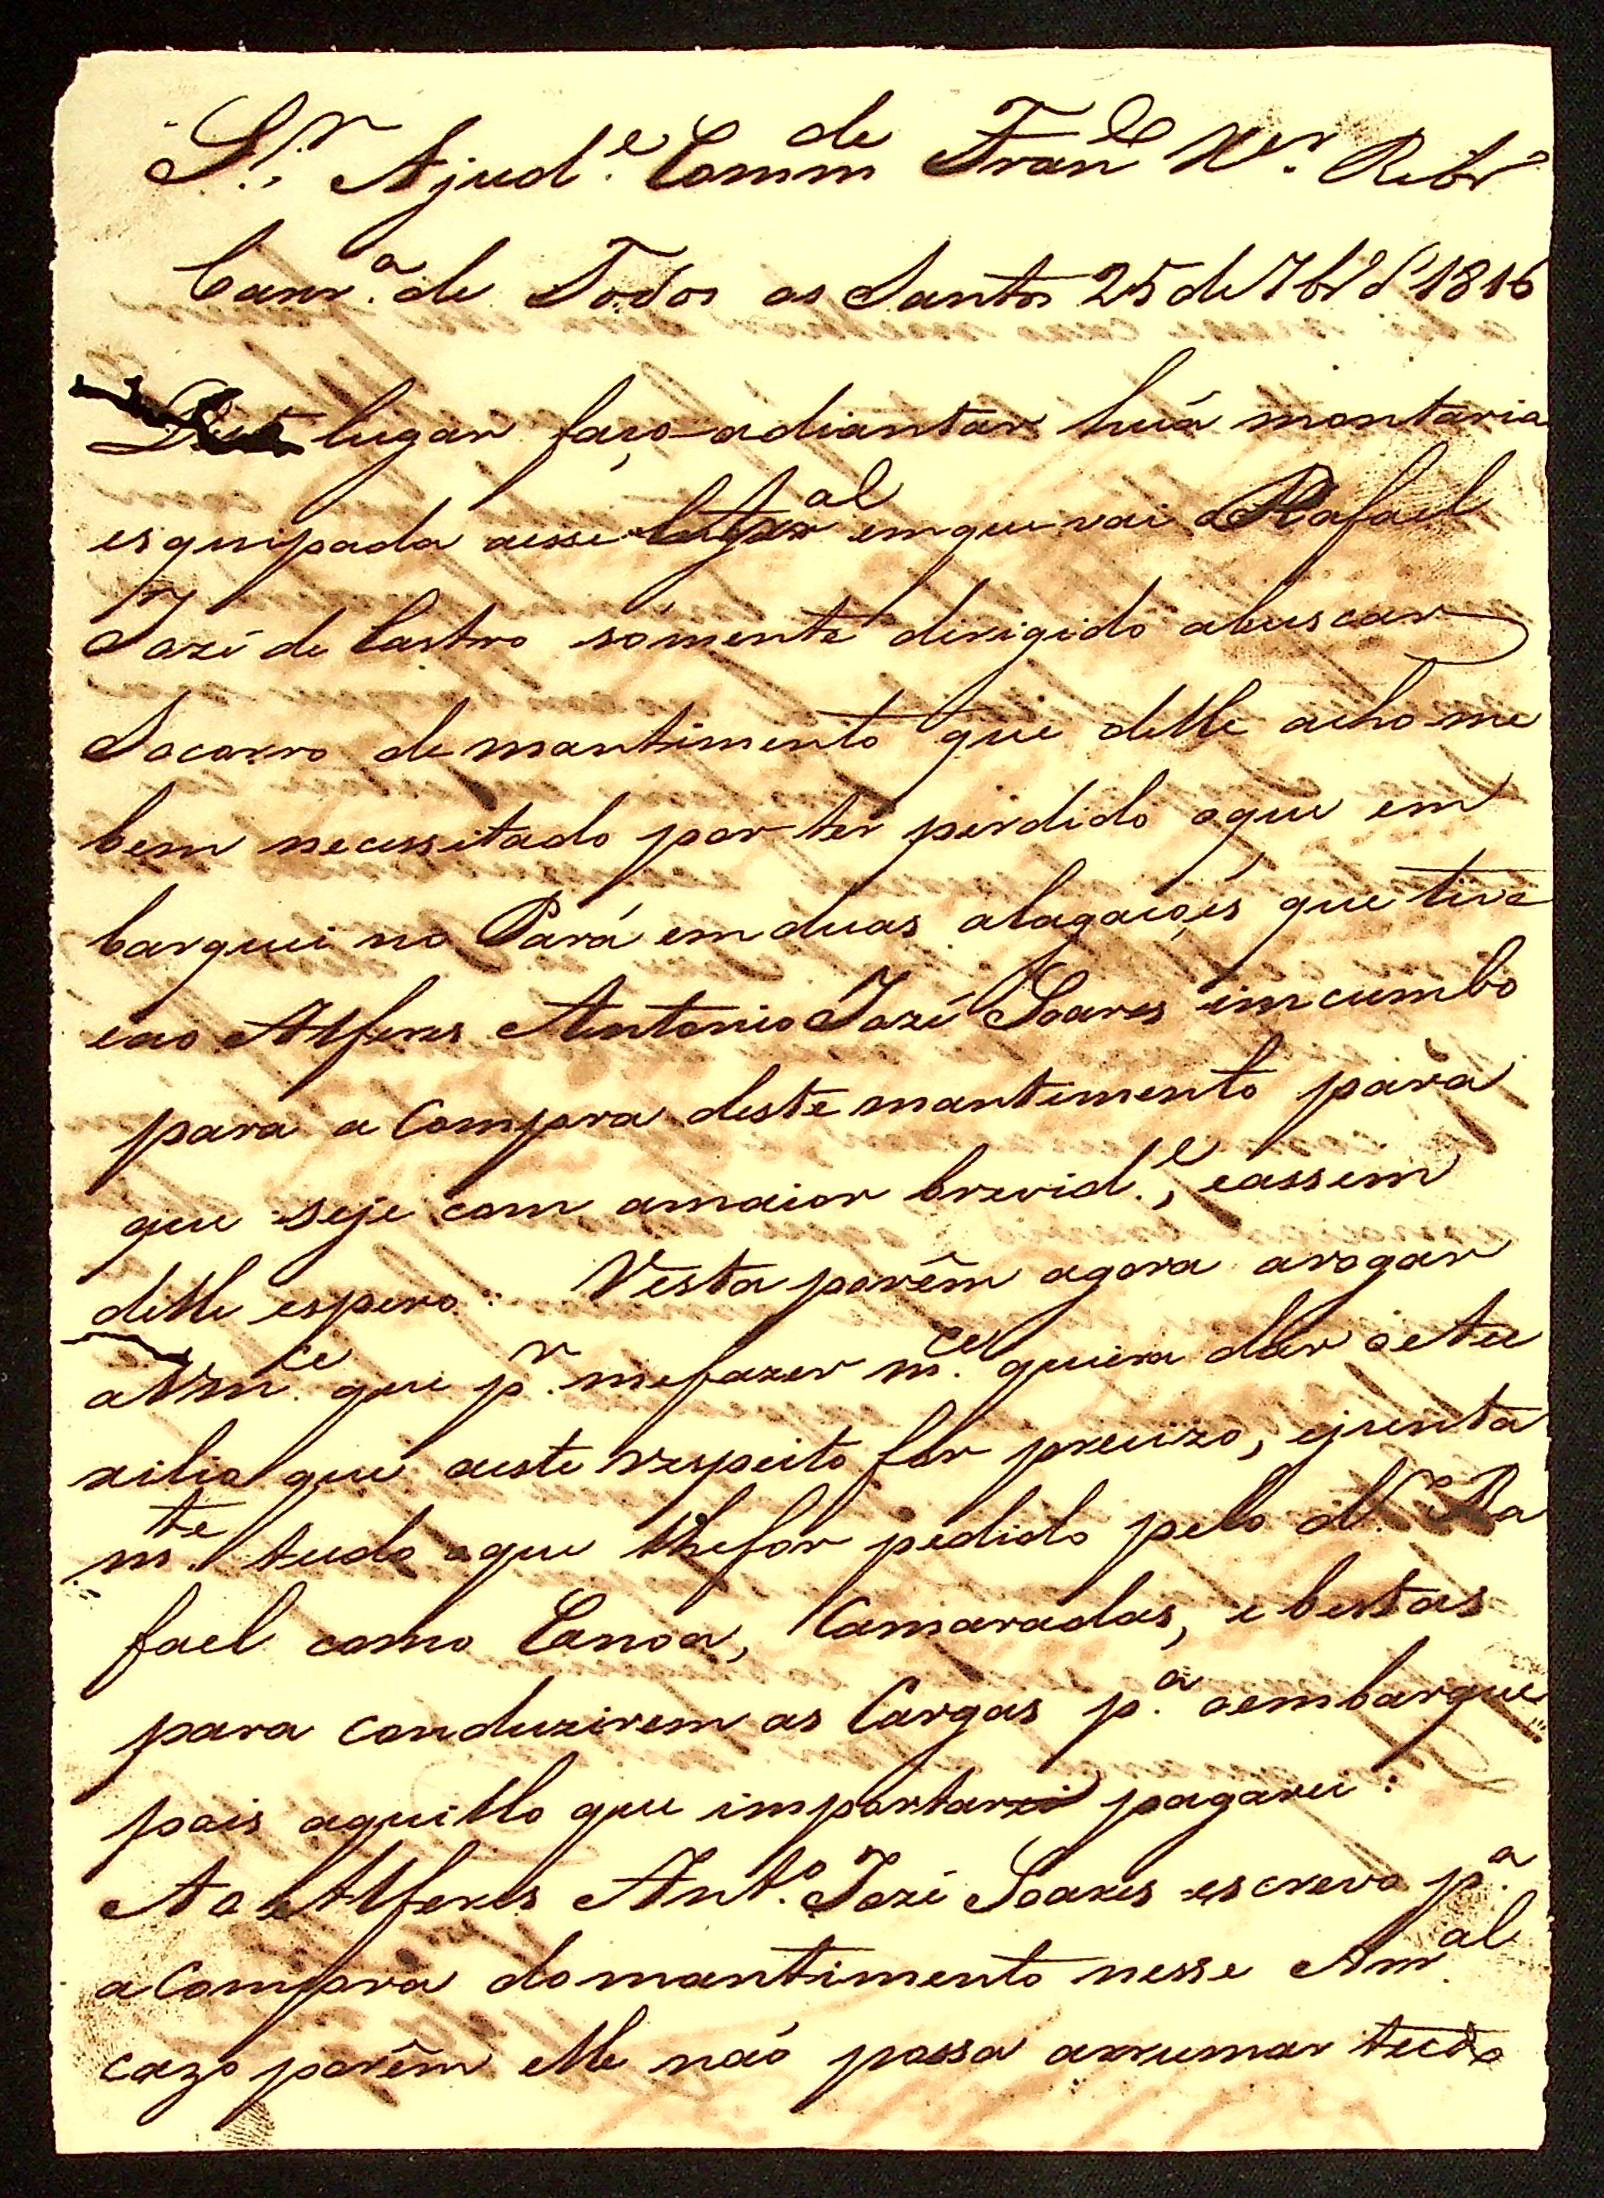 S.r Ajud.e Comm.de Fran.co X.er Ribr.o
Caxr.a de Todos os Santos 25 de 7br.o d 1816
Deste lugar faço adiantar huá montaria
esquipada aesse emque vai o Rafael
Jozé de Castro sómente dirigido abuscar
Socorro demantimento que delle acho-me
bem necessitado por ter perdido oque em
barquei no Pará em duas alagaçoẽs que tive
eao Alferes Antonio Jozé Soares imcumbo
para a Compra deste mantimento pará
que seje com amaior brevid.e, eassem
delle espero: Resta porêm agora arogar
aVm.ce que p.r mefazer m.ce queira dar oetu
xilio que aeste respeito for precizo, ejunta
m.te tudo oque lhefor pedido pelo d.o Ra
fael como Canoa, Camaradas, e bestas
para conduzirem as Cargas p.a oembarque
pois aquillo que importarei pagarei:
Ao Alferes Ant.o Jozé Soares escrevo p.a
a Compra domantimento nesse Arr.al
cazo porêm elle naó possa arrumar tudo